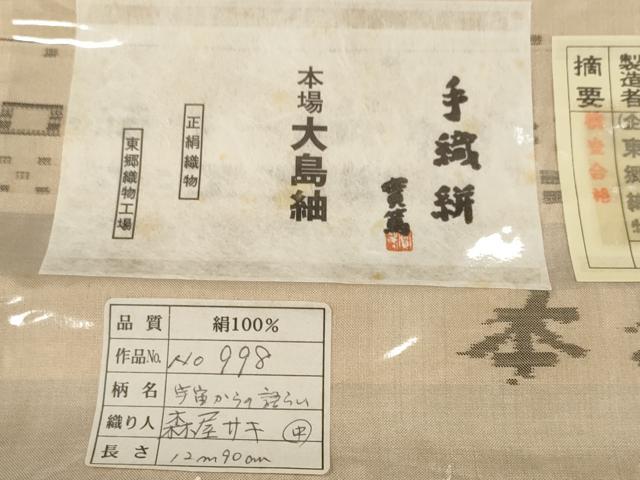 手織絣
實篤
本場大島紬
正絹織物
東郷織物工場
品質 絹100%
作品No. No 998
柄名 宇宙からの語らい
織り人 森屋サキ 中
長さ 12m90cm
製造者(企
東郷織物
摘要
検査合格
本